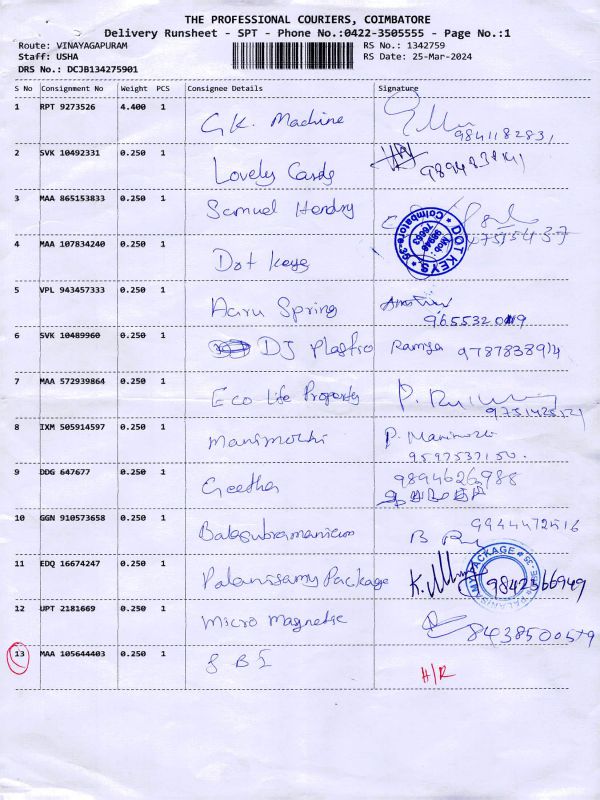 THE PROFESSIONAL COURIERS, COIMBATORE
Delivery Runsheet - SPT - Phone No.:0422-3505555 - Page No.:1
Route: VINAYAGAPURAM RS No.: 1342759
Staff: USHA RS Date: 25-Mar-2024
DRS No.: DCJB134275901
S No Consignment No Weight PCS Consignee Details Signature
1 RPT 9273526 4.400 1 G.K. Machine
9841182831
2 SVK 10492331 0.250 1 Lovely Cards
3 MAA 865153833 0.250 1 Samuel Hendry
4 MAA 107834240 0.250 1 Dot Keys DOT KEYS Coimbatore-35
5 VPL 943457333 0.250 1 Aaru Spring
6 SVK 10489960 0.250 1 DJ Plastic Ramya 9787838914
7 MAA 572939864 0.250 1 Eco Life Property P.
8 IXM 505914597 0.250 1 P.
9597537150.
9 DDG 647677 0.250 1 Geetha 9894626988
10 GGN 910573658 0.250 1 Balasubramanium B 9944472516
11 EDQ 16674247 0.250 1 Palanisamy Package K. 9842566949 PALANISAMY PACKAGE
12 UPT 2181669 0.250 1 Micro Magnetic 8438500579
13 MAA 105644403 0.250 1 S B I H/R